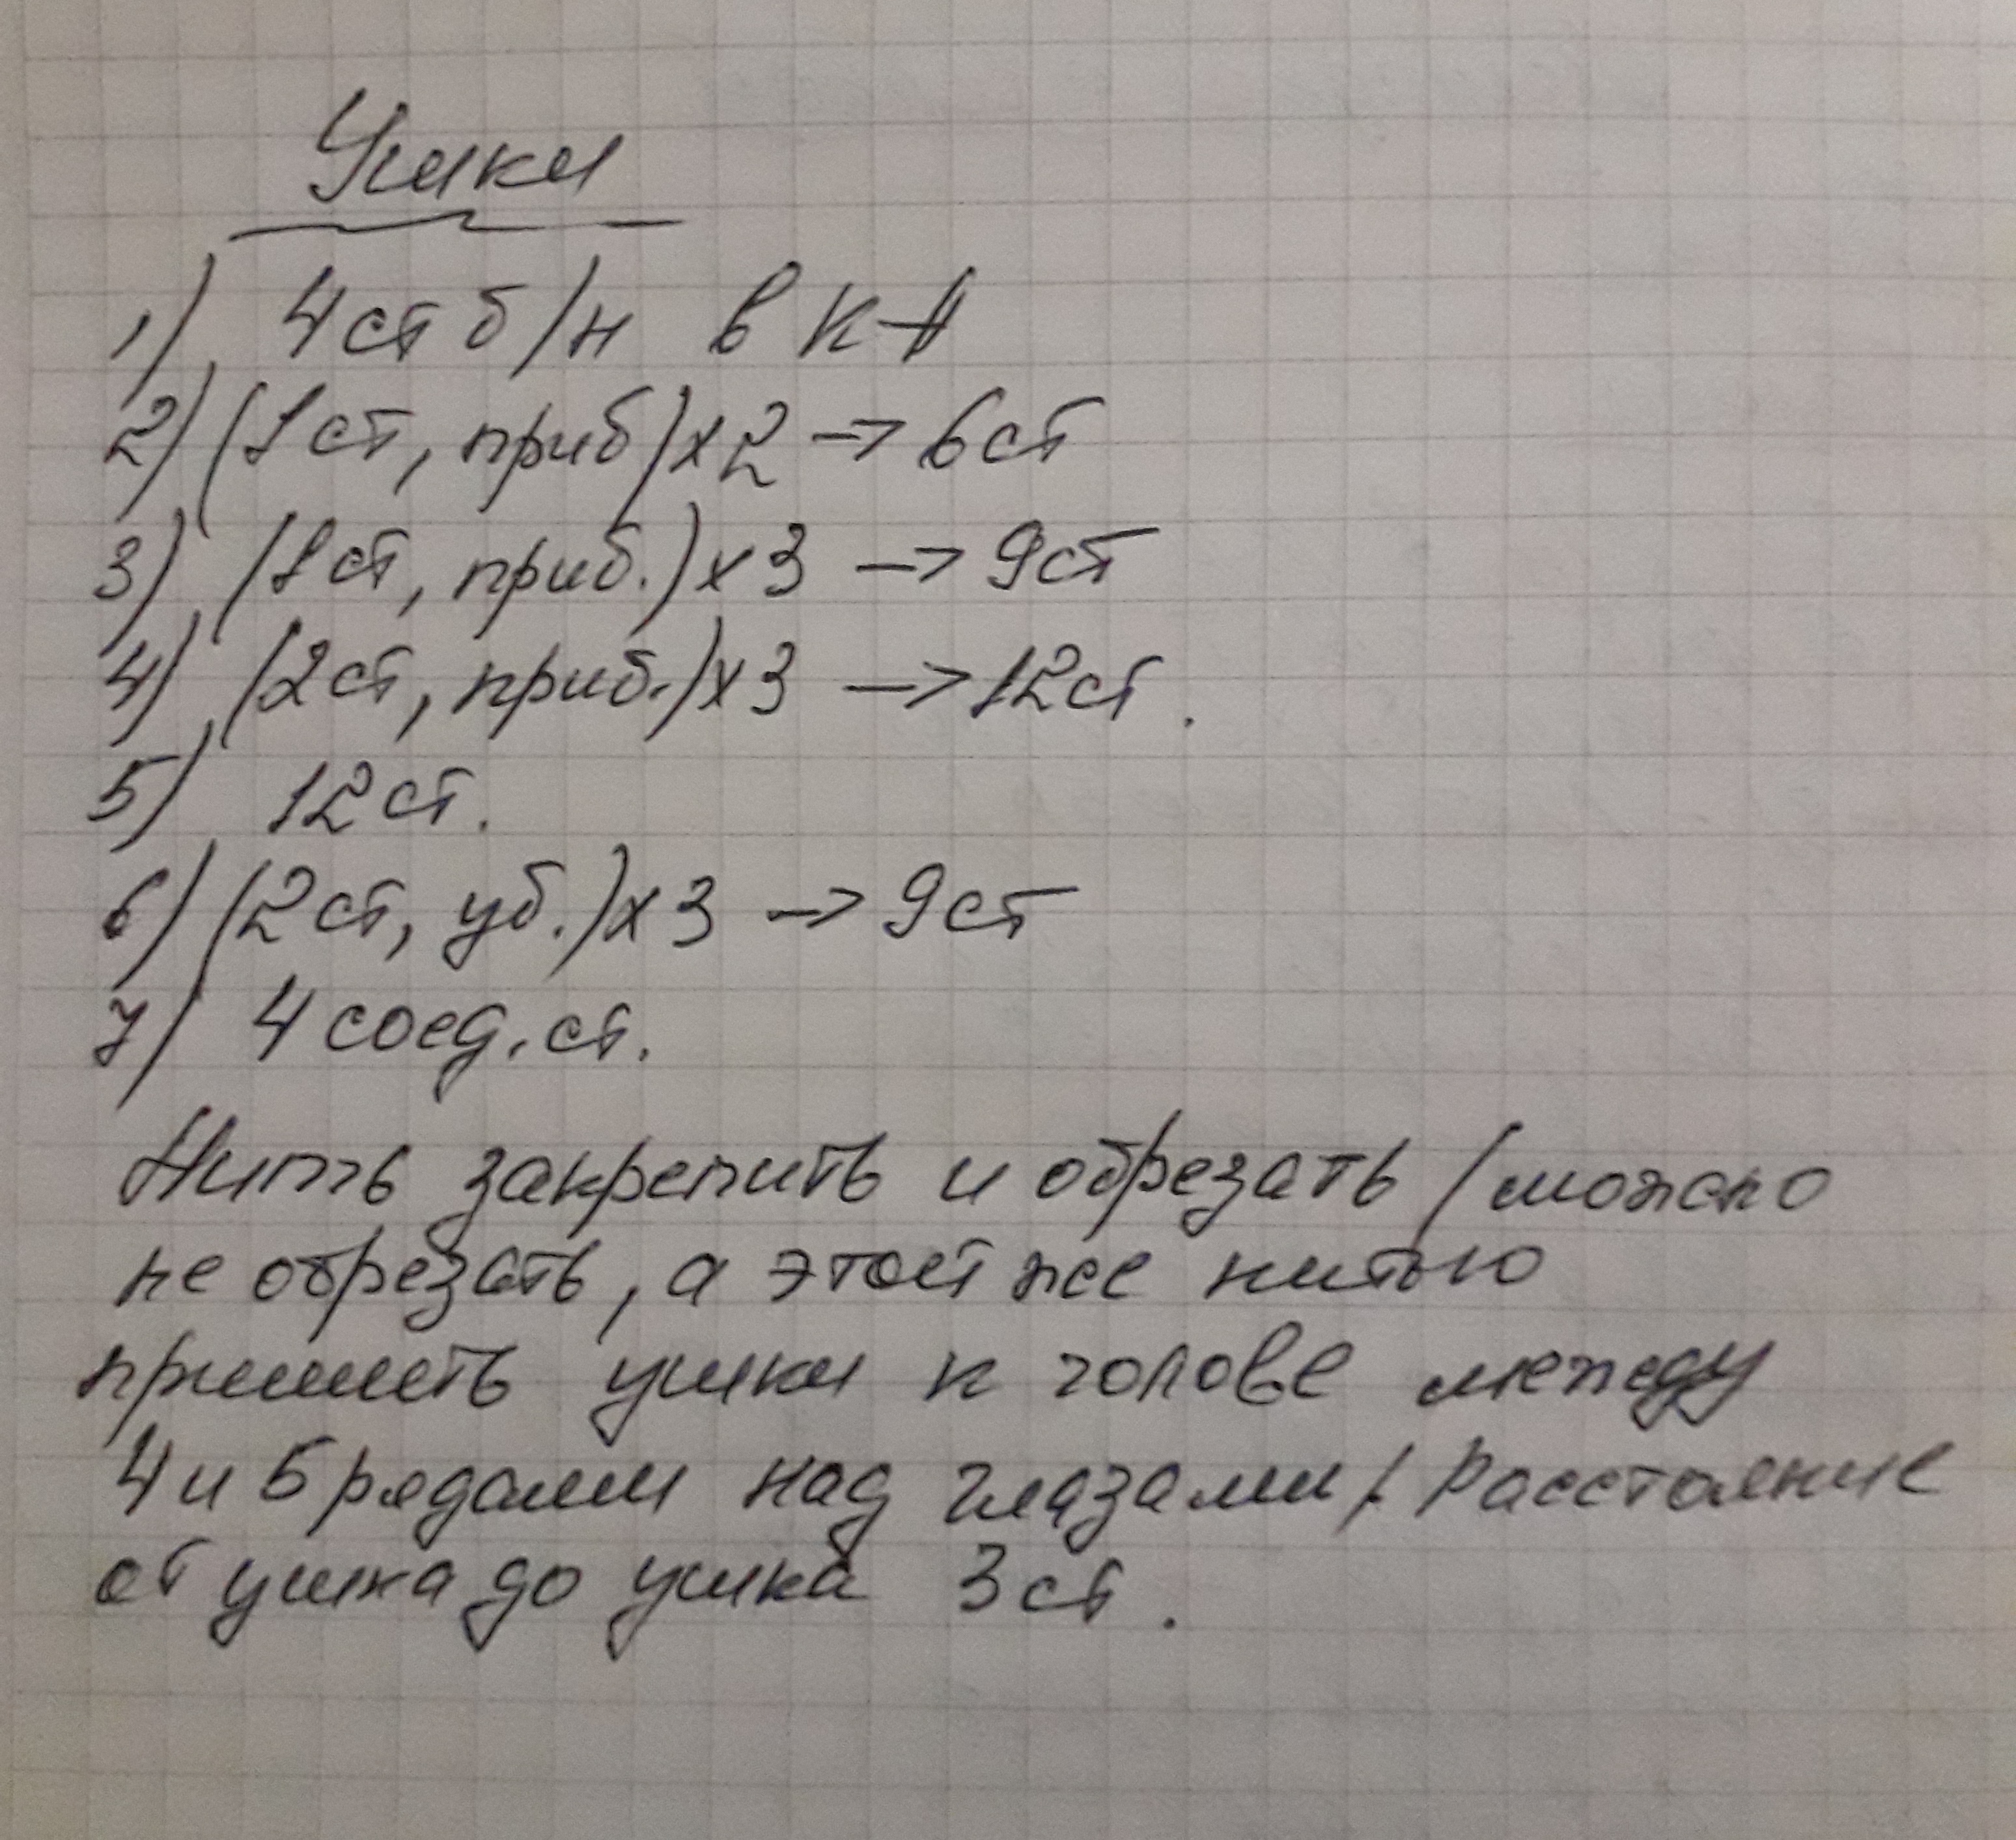 Ушки
1) 4ст б/н в КА
2) (1ст, приб) х2 → 6ст
3) (1ст, приб.) х3 → 9ст
4) (2ст, приб.) х3 → 12ст.
5) 12ст.
6) (2ст, уб.) х3 → 9ст
7) 4 соед. ст.
Нить закрепить и обрезать (можно
не обрезать, а этой же нитью
пришить ушки к голове между
4 и 5 рядами над глазами). Расстояние
от ушка до ушка 3ст.